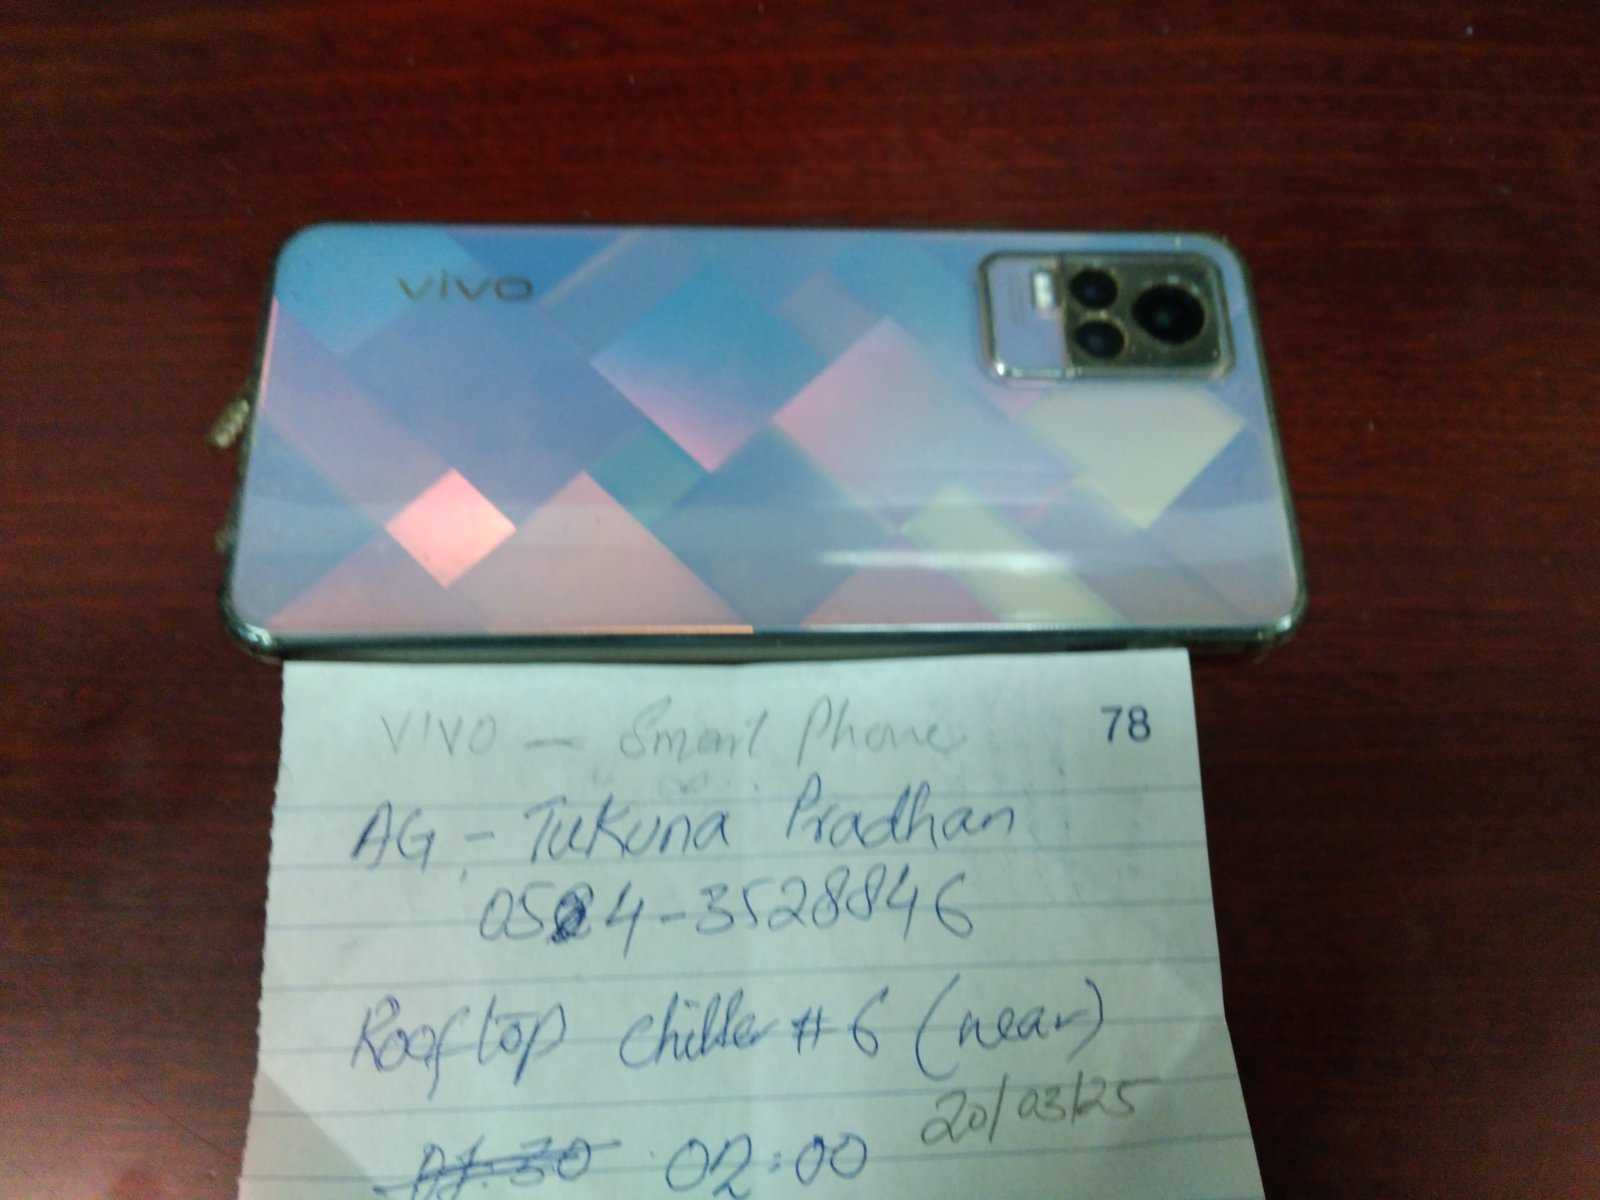 vivo
VIVO — Smart Phone 78
AG - Tukuna Pradhan
0524-3528846
Rooftop chiller # 6 (near)
20/03/25
02:00